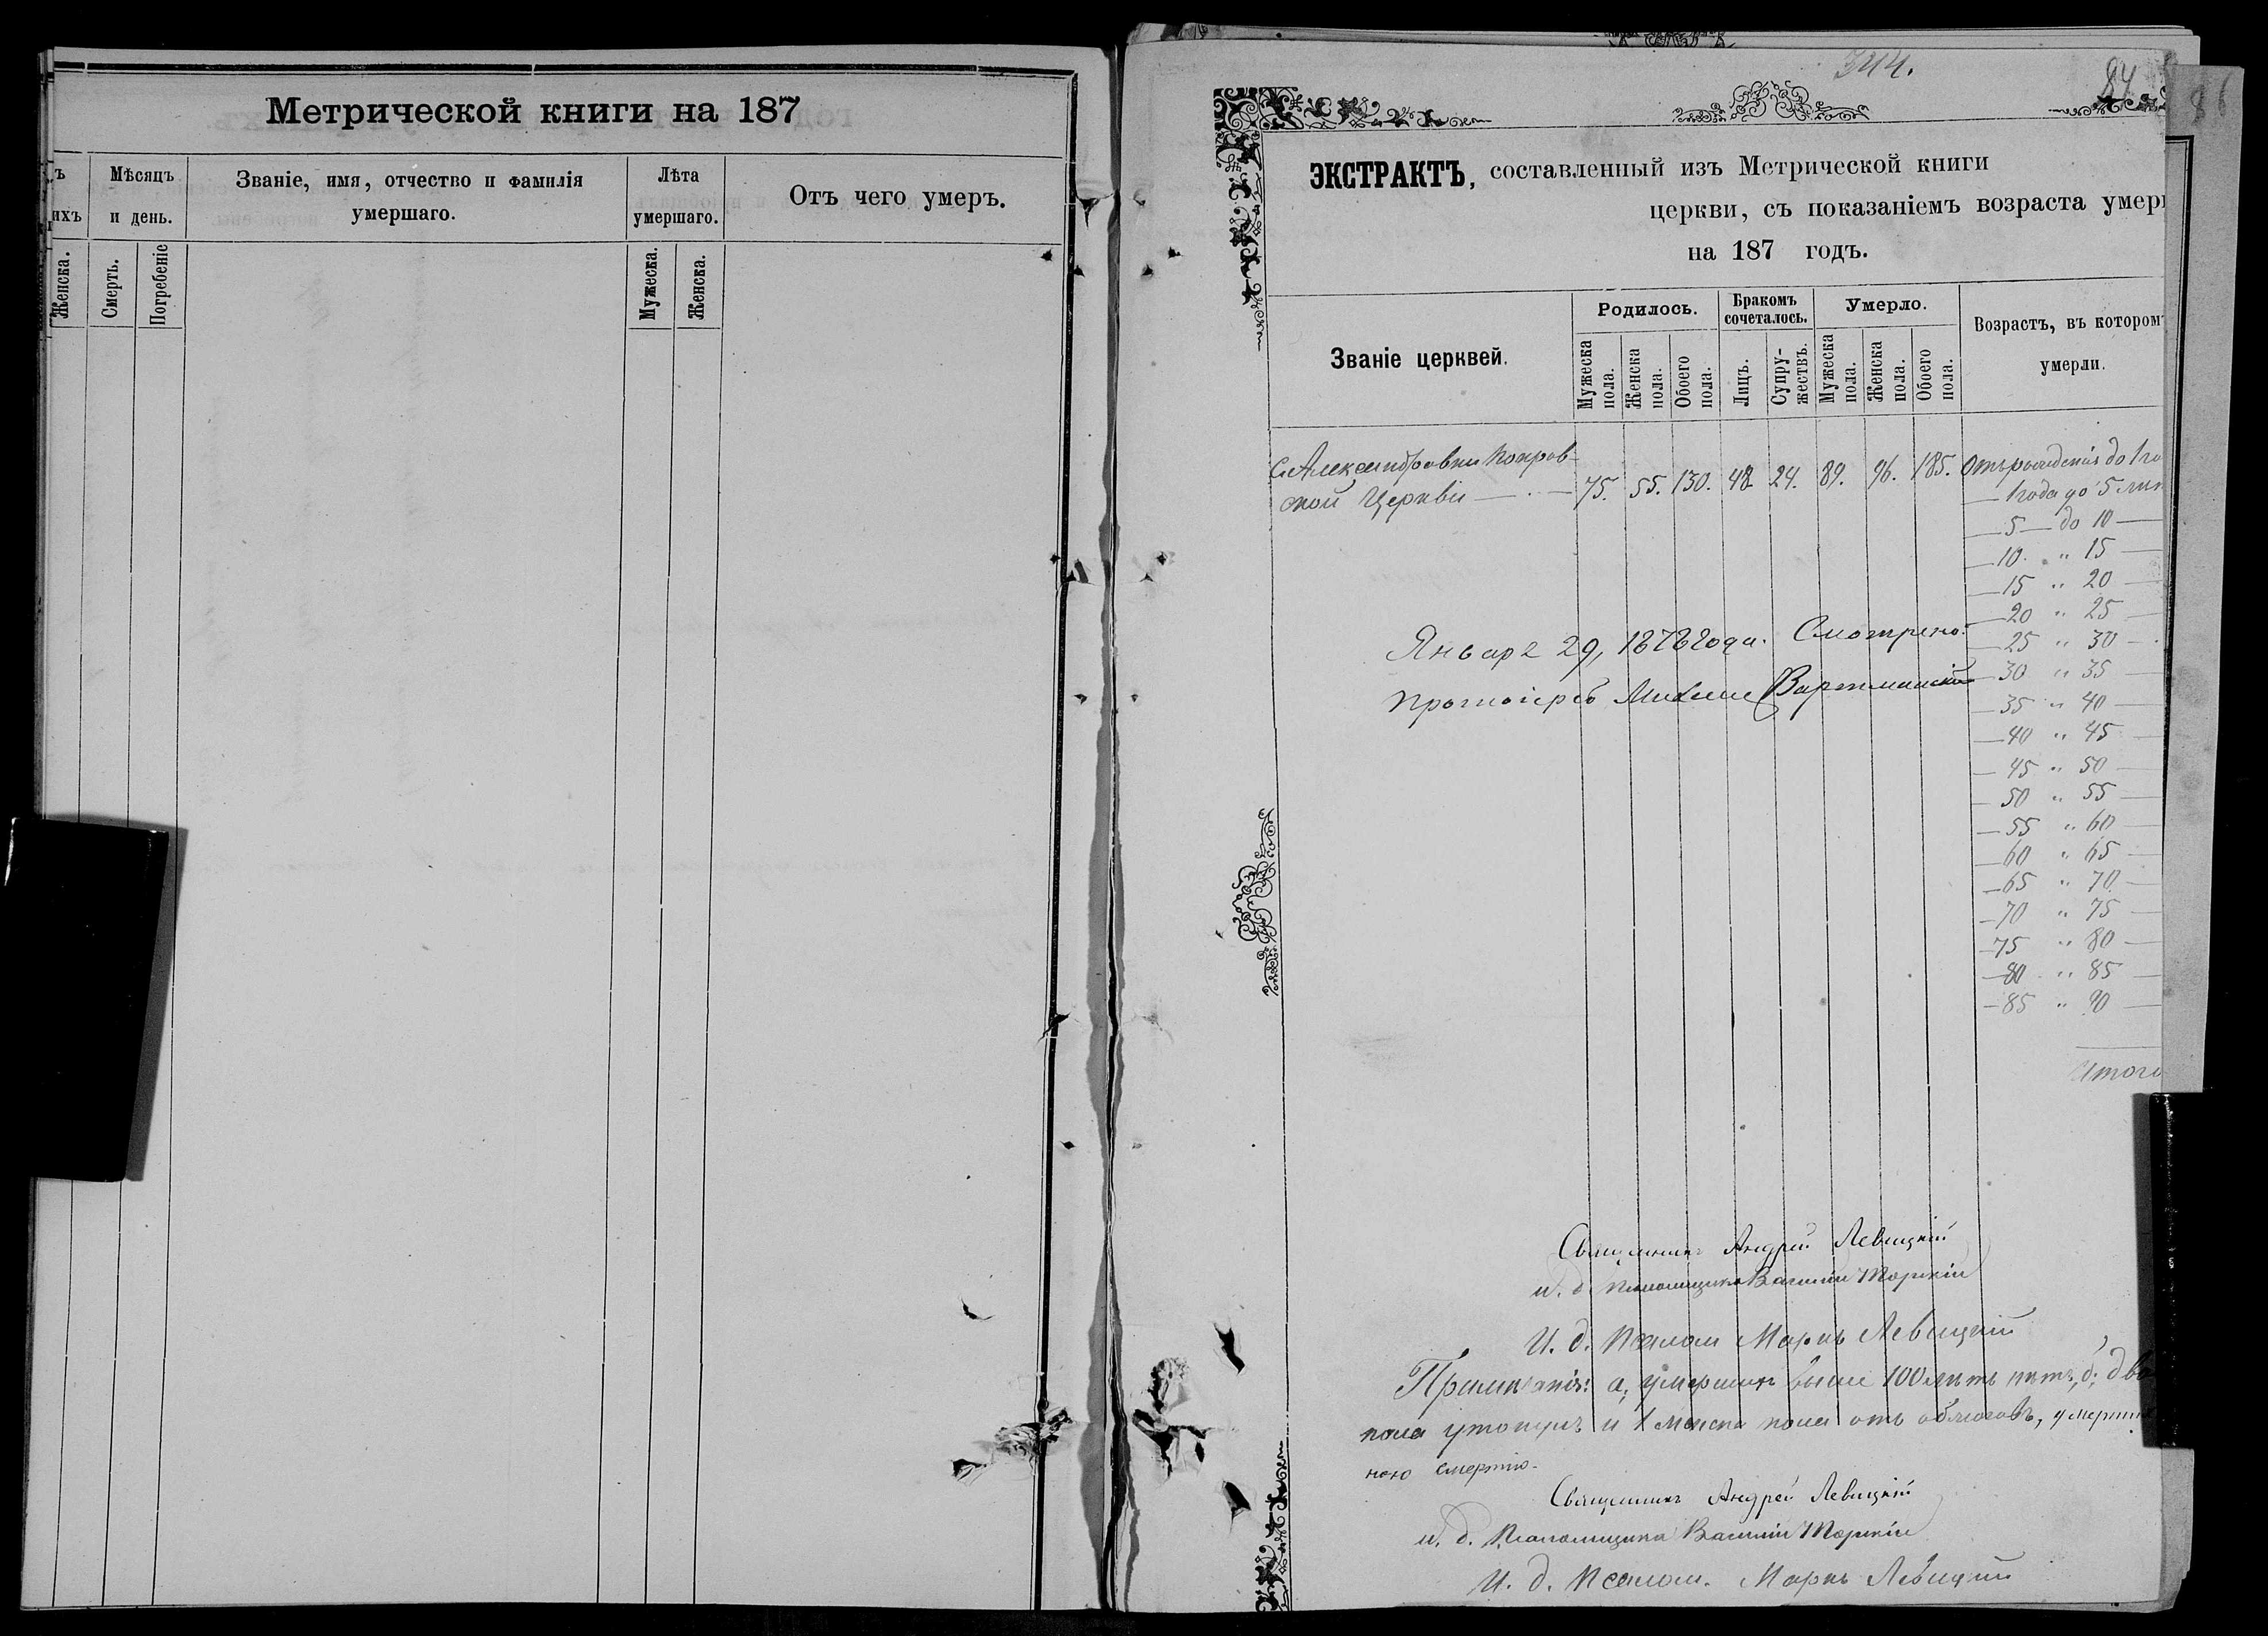 Метрической книги на 187
ъ
ихъ
Женска.
Мѣсяцъ
и день.
Смерть.
Погребеніе
Званіе, имя, отчество и фамилія
умершаго.
Лѣта
умершаго.
Мужеска.
Женска.
Отъ чего умеръ.
344.
84
86
ЭКСТРАКТЪ, составленный изъ Метрической книги
церкви, съ показаніемъ возраста умер
на 187 годъ.
Званіе церквей.
Родилось.
Мужеска пола.
Женска пола.
Обоего пола.
Бракомъ сочеталось.
Лицъ.
Супружествъ.
Умерло.
Мужеска пола.
Женска пола.
Обоего пола.
Возрастъ, въ котором
умерли.
С. Александровки Покров-
ской Церкви — 75. 55. 130. 48. 24. 89. 96. 185.
Отъ рожденія до 1 го
— 1 года до 5 лит
— 5 — до 10 —
— 10 " 15 —
— 15 " 20 —
— 20 " 25 —
— 25 " 30 —
— 30 " 35 —
— 35 " 40 —
— 40 " 45 —
— 45 " 50 —
— 50 " 55 —
— 55 " 60 —
— 60 " 65 —
— 65 " 70 —
— 70 " 75 —
— 75 " 80 —
— 80 " 85 —
— 85 " 90 —
Итого
Января 29, 1878 года. Смотрено.
Протоіерей
Священникъ Андрей Левицкій
и. д. Псаломщика Василій
И. д. Псалом Маркъ Левицкій
Примѣчанія: а, умершихъ выше 100 лѣтъ нѣтъ, б, два
пола и 1 пола отъ
ною смертію.
Священникъ Андрей Левицкій
и. д. Псаломщика Василій
И. д. Псалом. Маркъ Левицкій